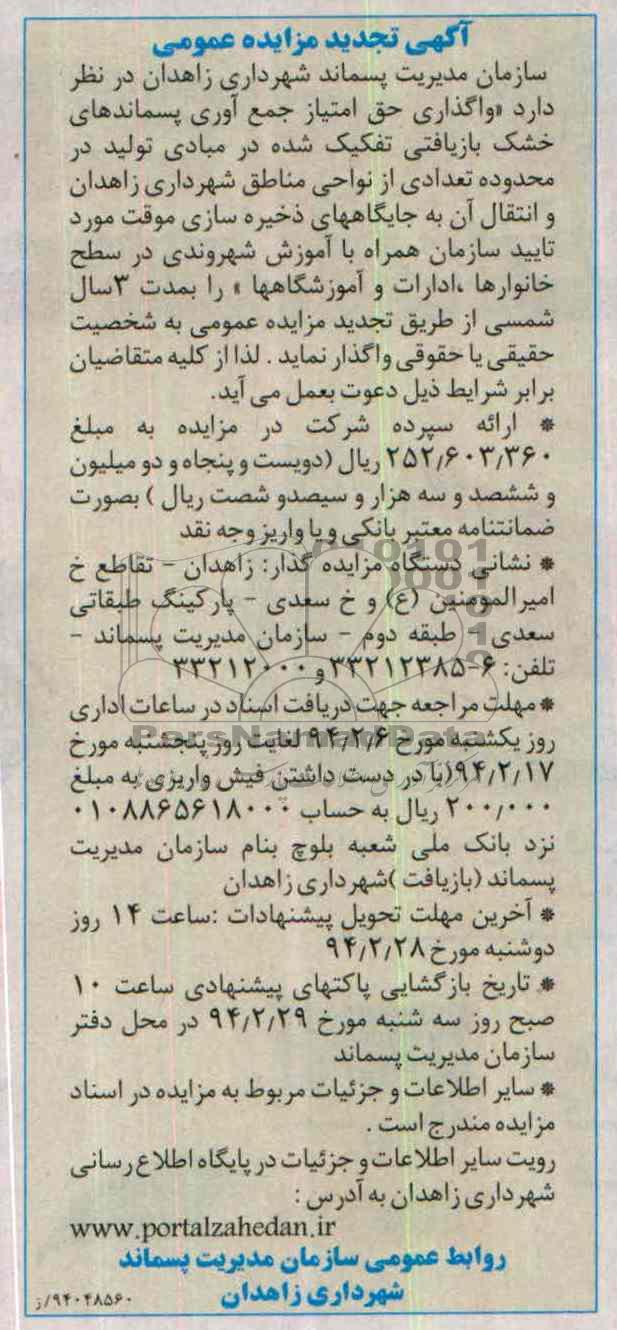 آگهی تجدید مزایده عمومی
سازمان مدیریت پسماند شهرداری زاهدان در نظر
دارد «واگذاری حق امتیاز جمع آوری پسماندهای
خشک بازیافتی تفکیک شده در مبادی تولید در
محدوده تعدادی از نواحی مناطق شهرداری زاهدان
و انتقال آن به جایگاههای ذخیره سازی موقت مورد
تایید سازمان همراه با آموزش شهروندی در سطح
خانوارها ،ادارات و آموزشگاهها » را بمدت ۳سال
شمسی از طریق تجدید مزایده عمومی به شخصیت
حقیقی یا حقوقی واگذار نماید . لذا از کلیه متقاضیان
برابر شرایط ذیل دعوت بعمل می آید.
* ارائه سپرده شرکت در مزایده به مبلغ
۲۵۲٫۶۰۳٫۳۶۰ ریال (دویست و پنجاه و دو میلیون
و ششصد و سه هزار و سیصدو شصت ریال ) بصورت
ضمانتنامه معتبر بانکی و یا واریز وجه نقد
* نشانی دستگاه مزایده گذار: زاهدان – تقاطع خ
امیرالمومنین (ع) و خ سعدی – پارکینگ طبقاتی
سعدی – طبقه دوم – سازمان مدیریت پسماند –
تلفن: ۶-۳۳۲۱۲۳۸۵ و ۳۳۲۱۲۰۰۰
* مهلت مراجعه جهت دریافت اسناد در ساعات اداری
روز یکشنبه مورخ ۹۴٫۲٫۶ لغایت روز پنجشنبه مورخ
۹۴٫۲٫۱۷(با در دست داشتن فیش واریزی به مبلغ
۲۰۰٫۰۰۰ ریال به حساب ۰۱۰۸۸۶۵۶۱۸۰۰۰
نزد بانک ملی شعبه بلوچ بنام سازمان مدیریت
پسماند (بازیافت )شهرداری زاهدان
* آخرین مهلت تحویل پیشنهادات :ساعت ۱۴ روز
دوشنبه مورخ ۹۴٫۲٫۲۸
* تاریخ بازگشایی پاکتهای پیشنهادی ساعت ۱۰
صبح روز سه شنبه مورخ ۹۴٫۲٫۲۹ در محل دفتر
سازمان مدیریت پسماند
* سایر اطلاعات و جزئیات مربوط به مزایده در اسناد
مزایده مندرج است .
رویت سایر اطلاعات و جزئیات در پایگاه اطلاع رسانی
شهرداری زاهدان به آدرس :
www.portalzahedan.ir
روابط عمومی سازمان مدیریت پسماند
شهرداری زاهدان
۹۴۰۴۸۵۶۰/ز
ParsNamadData